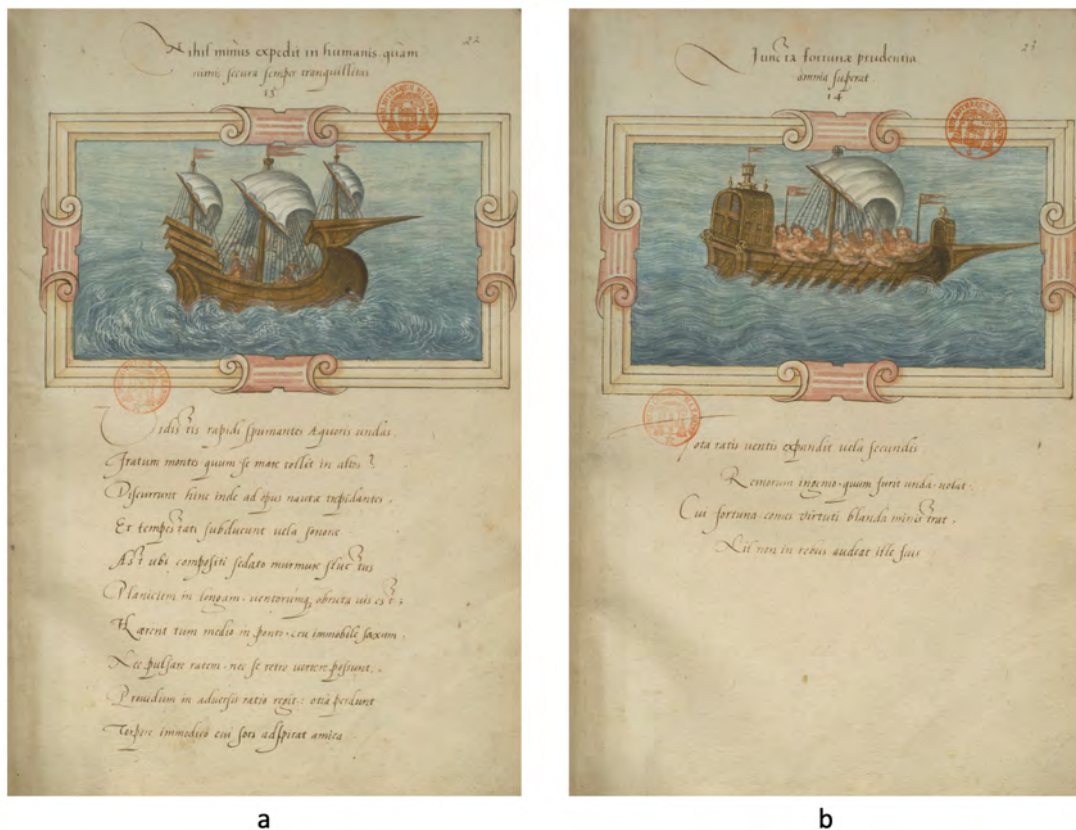 22
Nihil minus expedit in humanis quàm
nimis secura semper tranquillitas
15
Vidistis rapidi spumantes æquoris undas.
Iratum montes quum se mare tollit in altos?
Discurrunt hinc inde ad opus nautæ trepidantes.
Et tempestati subducunt uela sonoræ.
Ast ubi compositi sedato murmure fluctus
Planiciem in longam. uentorumq; obruta uis est:
Hærent tum medio in ponto. ceu immobile saxum.
Nec pulsare ratem. nec se retro uertere possunt.
Prouidum in aduersis ratio regit: otia perdunt
Torpere immodico cui sors adspirat amica.
a
23
Juncta fortunæ prudentia
omnia superat.
14
Tota ratis uentis expandit uela secundis
Remorum ingenio. quum furit unda. uolat.
Cui fortuna comes uirtuti blanda ministrat.
Nil non in rebus audeat ille suis
b